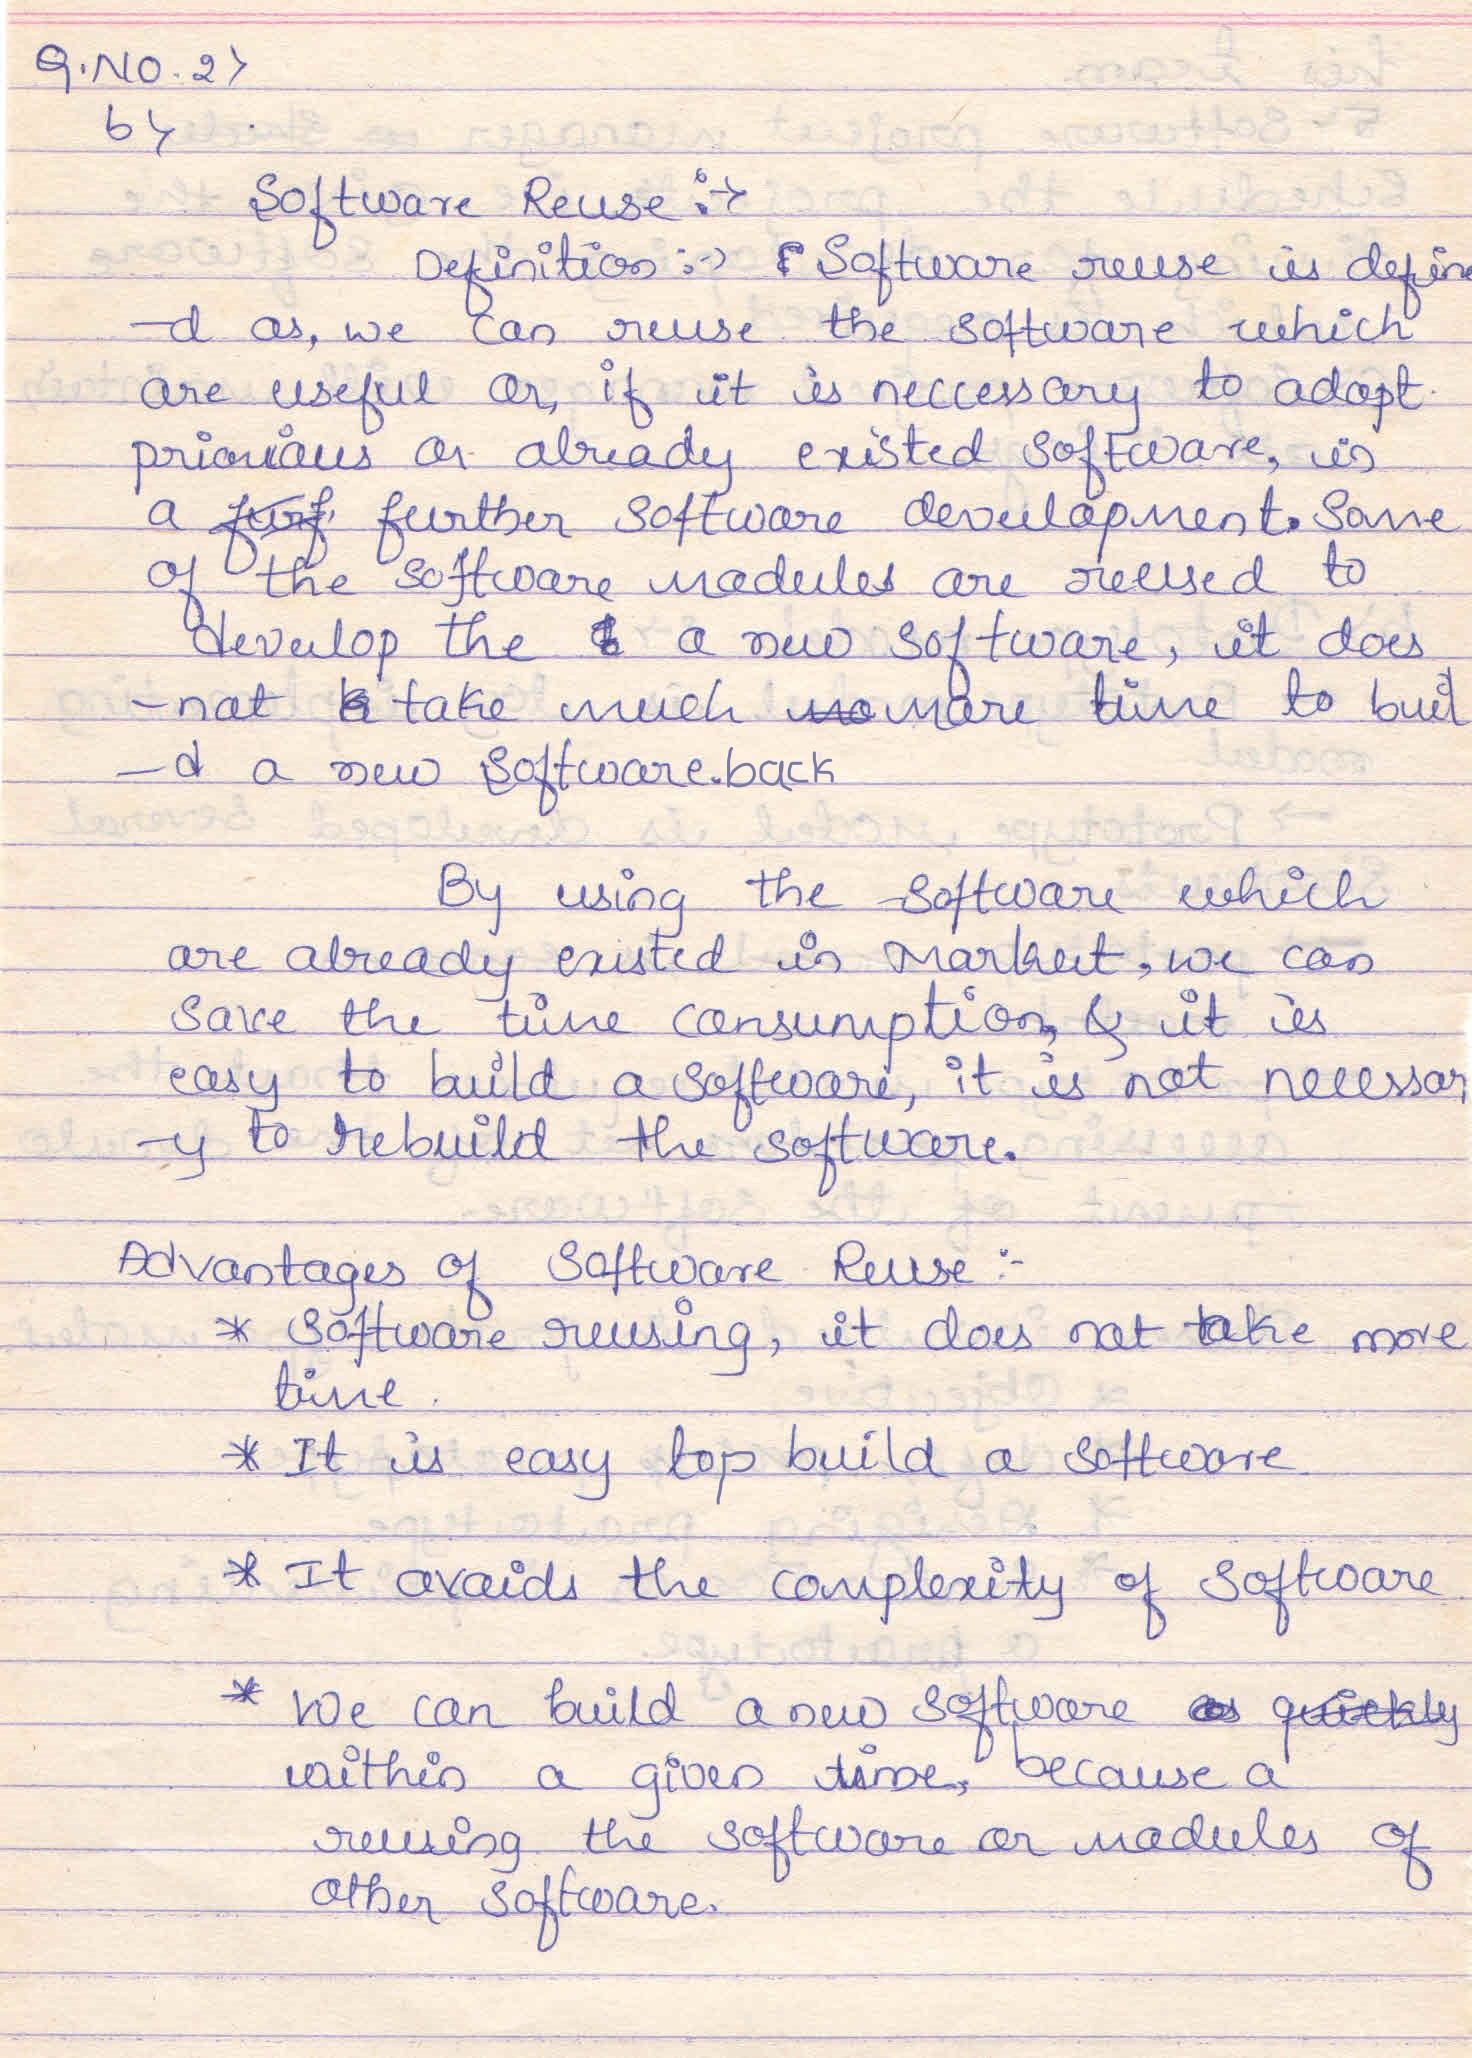 Q.NO.2>
b>
Software Reuse :->
Definition :-> Software reuse is define
-d as, we can reuse the software which
are useful or, if it is neccessary to adopt
or already existed software, is
a further software development. Some
of the software modules are reused to
develop the a new software, it does
-not take much more time to buil
-d a new software.back
By using the software which
are already existed in Market, we can
save the time consumption, & it is
easy to build a software, it is not necessar
-y to rebuild the software.
Advantages of Software Reuse :-
* Software reusing, it does not take more
time.
* It is easy top build a software
* It avoids the complexity of software
* We can build a new software as quickly
within a given time, because a
reusing the software or modules of
other software.